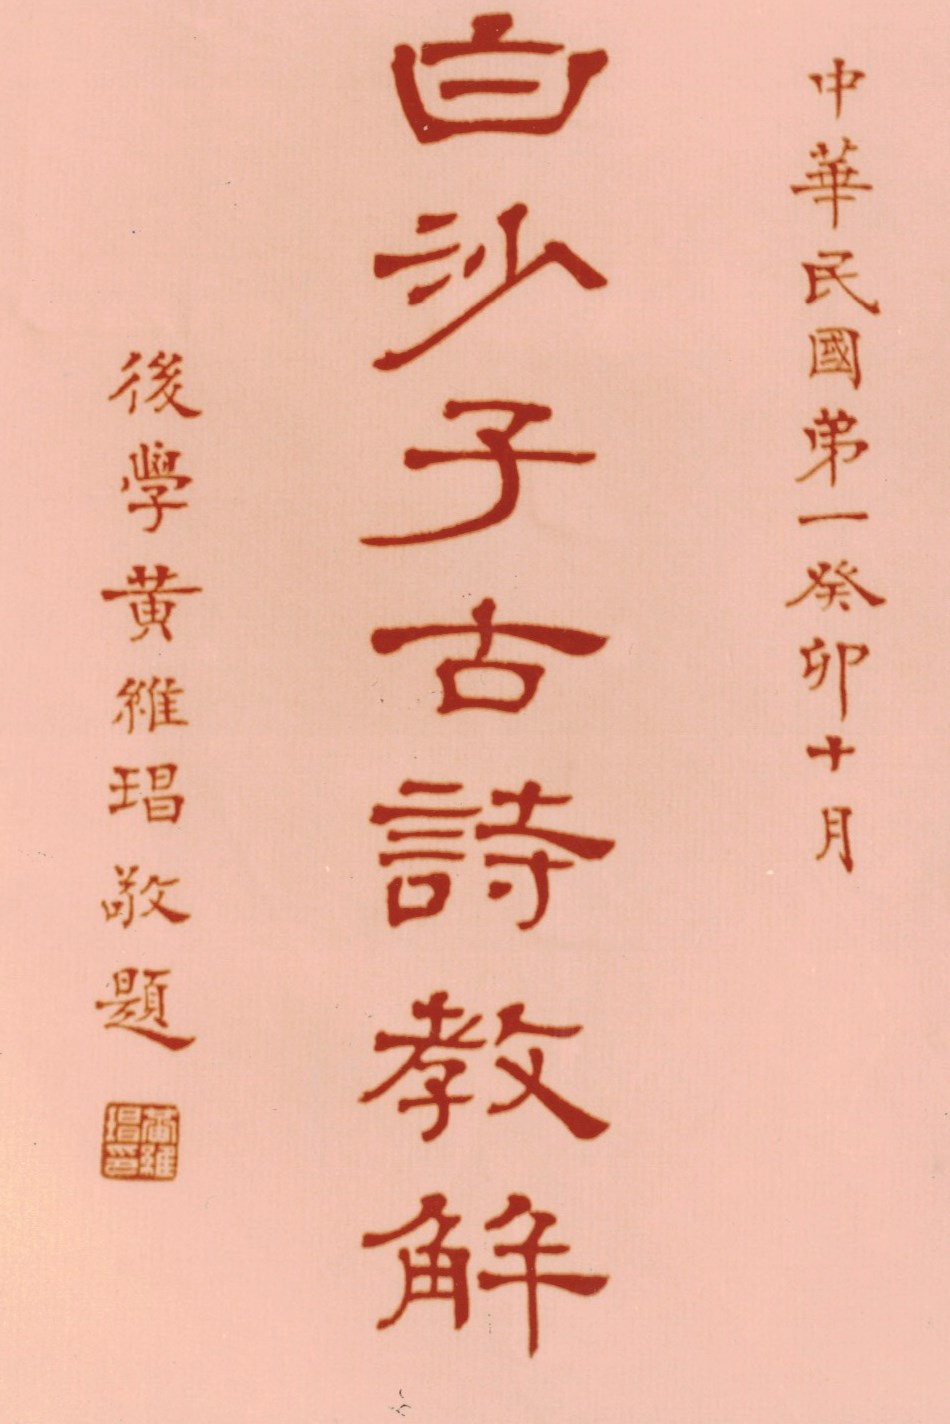 中華民國弟一癸卯十月
白沙子古詩教解
後學黃維琩敬題
黃維琩印